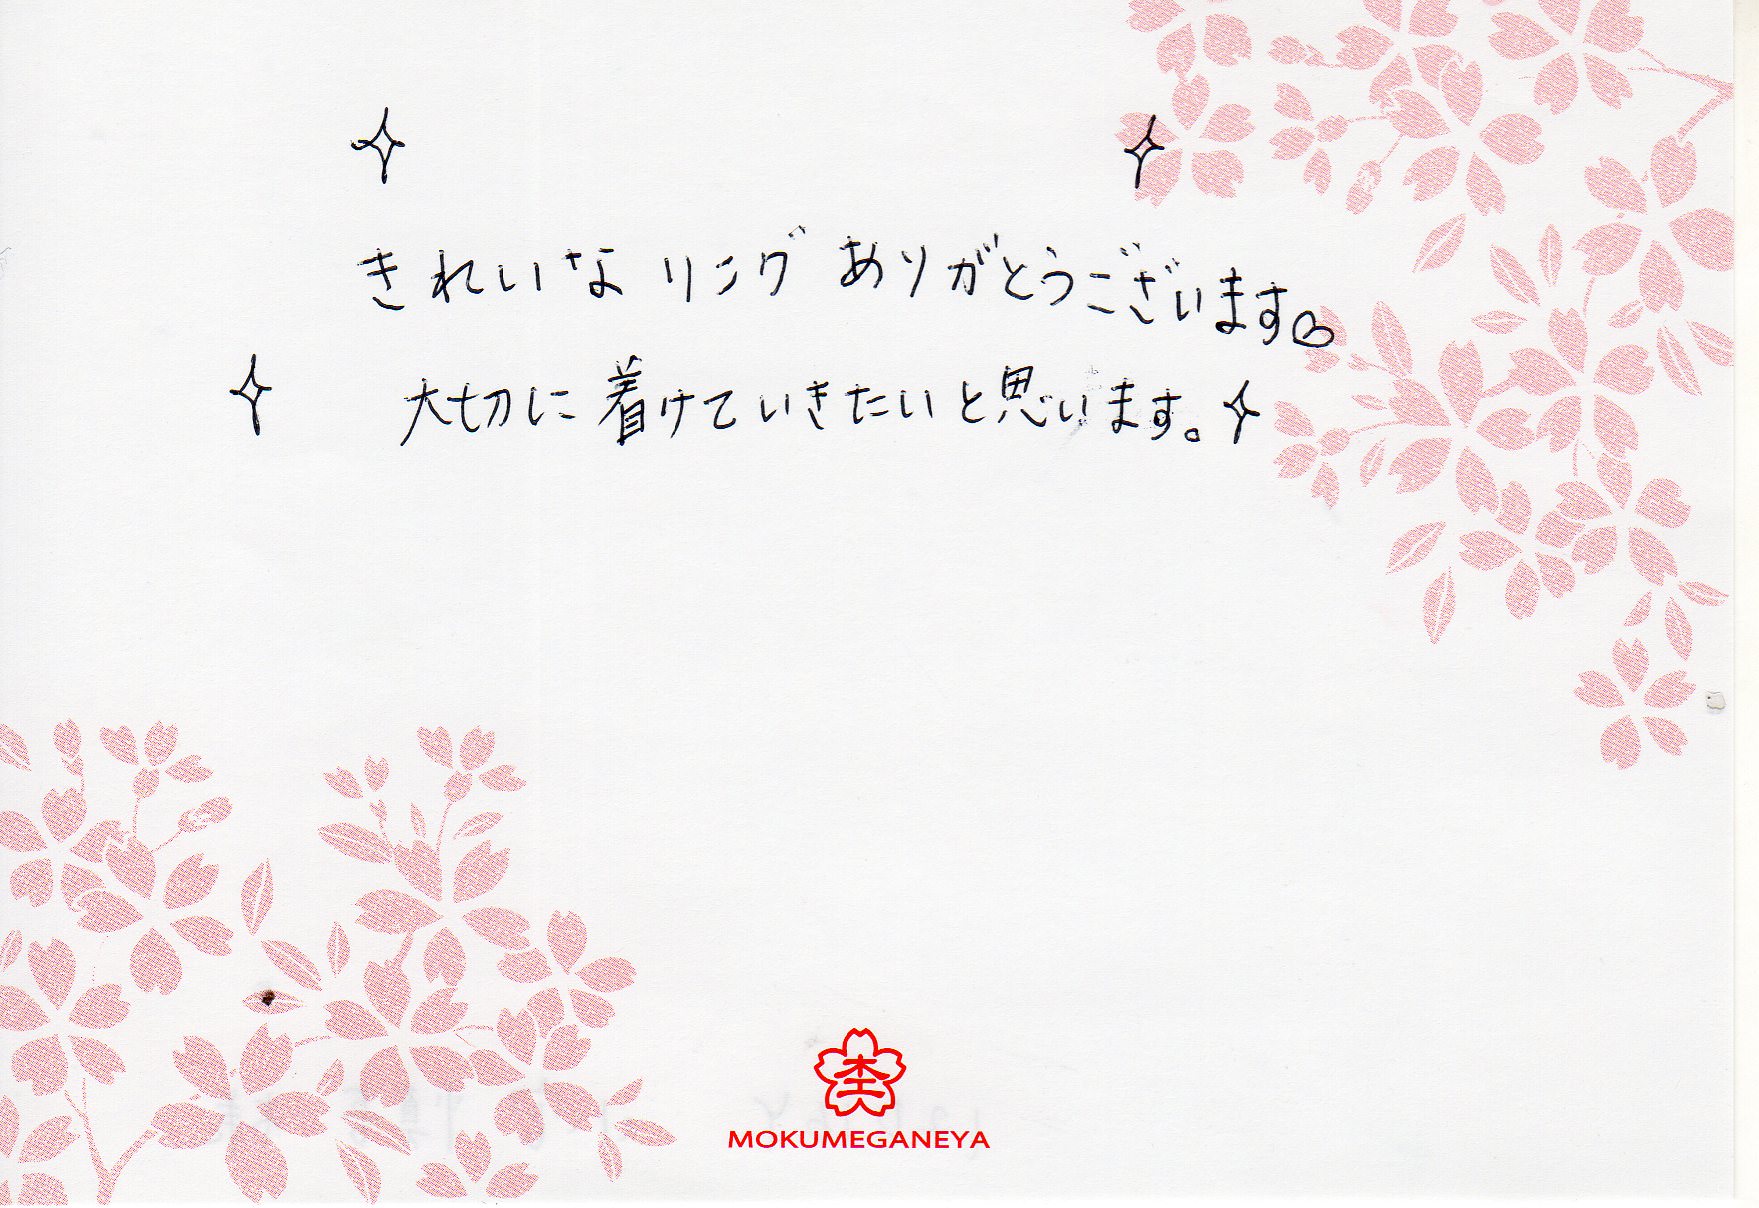 きれいなリングありがとうございます♡
大切に着けていきたいと思います。
MOKUMEGANEYA